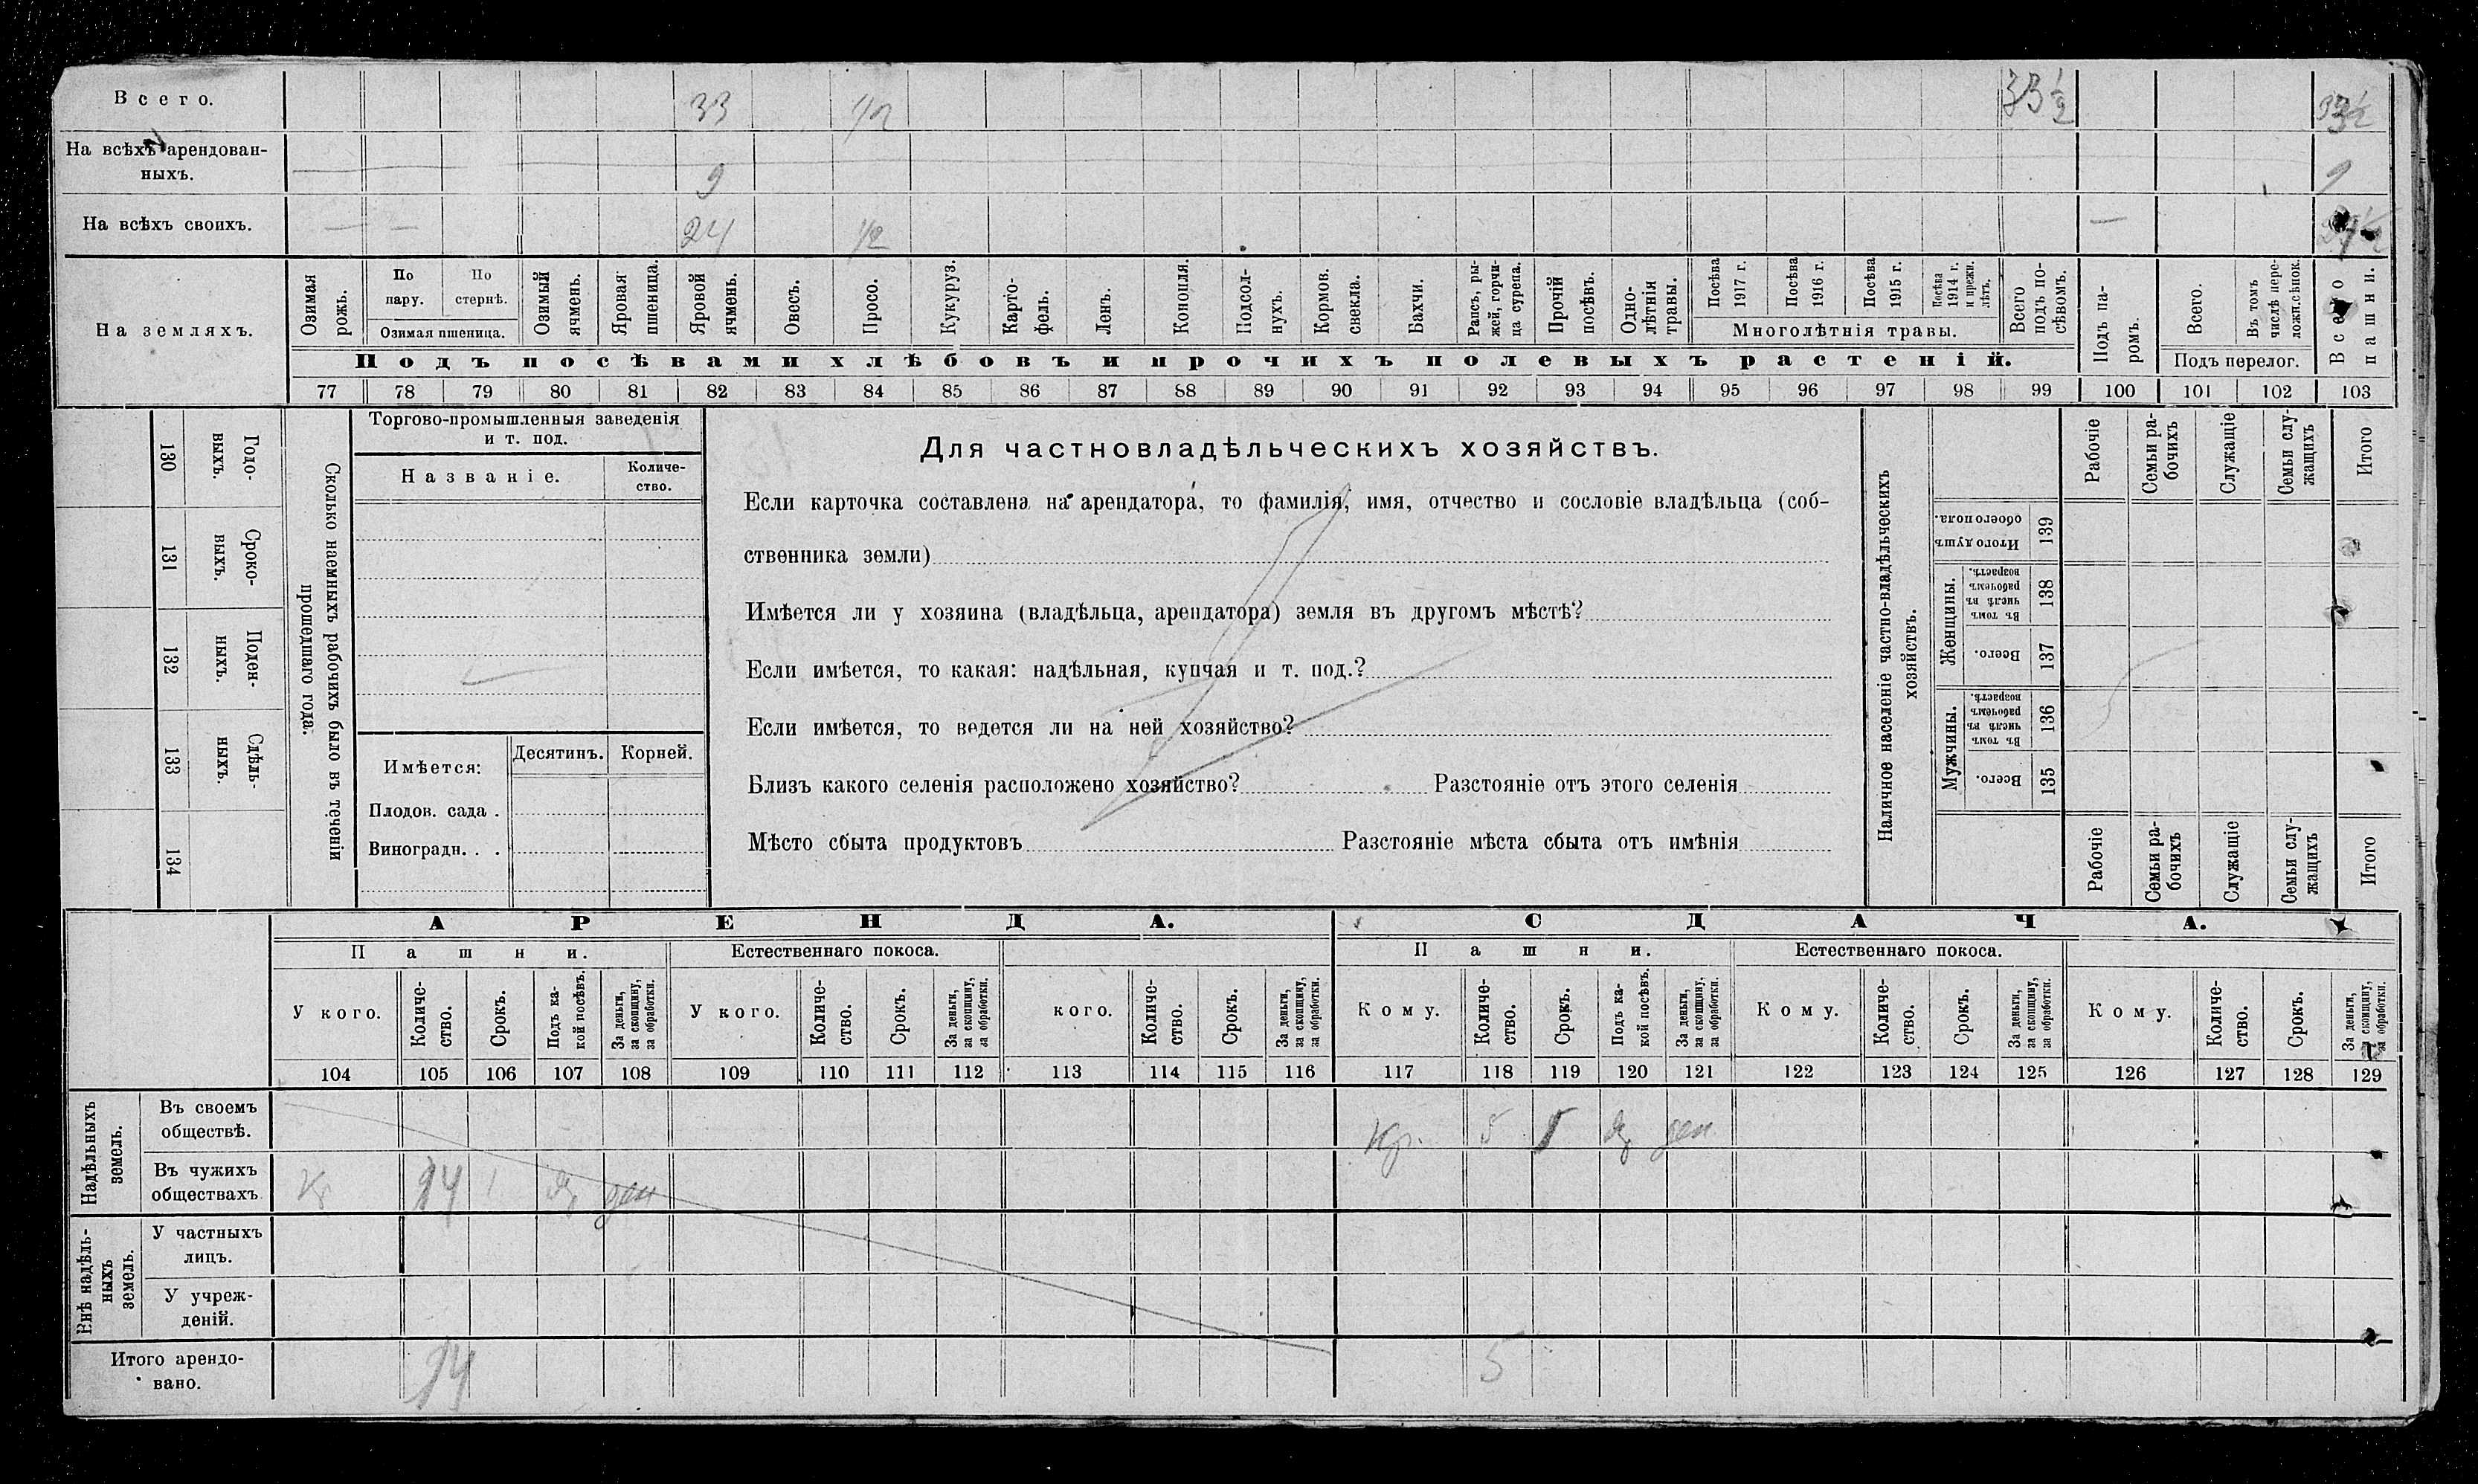 Всего. 33 1/2 33 1/2 33 1/2
На всѣхъ арендован-
ныхъ. 9 9
На всѣхъ своихъ. — — 24 1/2 —
На земляхъ.
Озимая рожь.
По пару.
По стернѣ.
Озимая пшеница.
Озимый ячмень.
Яровая пшеница.
Яровой ячмень.
Овесъ.
Просо.
Кукуруз.
Карто-
фель.
Ленъ.
Конопля.
Подсол-
нухъ.
Кормов.
свекла.
Бахчи.
Рапсъ, ры-
жей, горчи-
ца сурепа.
Прочій
посѣвъ.
Одно-
лѣтнія
травы.
Посѣва
1917 г.
Посѣва
1916 г.
Посѣва
1915 г.
Посѣва
1914 г.
и прежн.
лѣтъ.
Многолѣтнія травы.
Всего
подъ по-
сѣвомъ.
Подъ па-
ромъ.
Всего.
Въ томъ
числѣ пере-
ложн.сѣнок.
Подъ перелог.
Всего
пашни.
Подъ посѣвами хлѣбовъ и прочихъ полевыхъ растеній.
77 78 79 80 81 82 83 84 85 86 87 88 89 90 91 92 93 94 95 96 97 98 99 100 101 102 103
130 Годо-
выхъ.
131 Сроко-
выхъ.
132 Поден-
ныхъ.
133 Сдѣль-
ныхъ.
134
Сколько наемныхъ рабочихъ было въ теченіи
прошедшаго года.
Торгово-промышленныя заведенія
и т. под.
Названіе.
Количе-
ство.
Имѣется:
Десятинъ. Корней.
Плодов. сада .
Виноградн. . .
Для частновладѣльческихъ хозяйствъ.
Если карточка составлена на арендатора, то фамилія, имя, отчество и сословіе владѣльца (соб-
ственника земли)
Имѣется ли у хозяина (владѣльца, арендатора) земля въ другомъ мѣстѣ?
Если имѣется, то какая: надѣльная, купчая и т. под.?
Если имѣется, то ведется ли на ней хозяйство?
Близъ какого селенія расположено хозяйство? Разстояніе отъ этого селенія
Мѣсто сбыта продуктовъ Разстояніе мѣста сбыта отъ имѣнія
Наличное населеніе частно-владѣльческихъ
хозяйствъ.
Рабочіе
Семьи ра-
бочихъ
Служащіе
Семьи слу-
жащихъ
Итого
139 Итого душъ
обоего пола.
Женщины.
138 Въ томъ
числѣ въ
рабочемъ
возрастѣ.
137 Всего.
Мужчины.
136 Въ томъ
числѣ въ
рабочемъ
возрастѣ.
135 Всего.
Рабочіе
Семьи ра-
бочихъ
Служащіе
Семьи слу-
жащихъ
Итого
АРЕНДА. СДАЧА.
Пашни. Естественнаго покоса. Пашни. Естественнаго покоса.
У кого.
Количе-
ство.
Срокъ.
Подъ ка-
кой посѣвъ.
За деньги,
за скопщину,
за обработки.
У кого.
Количе-
ство.
Срокъ.
За деньги,
за скопщину,
за обработки.
кого.
Количе-
ство.
Срокъ.
За деньги,
за скопщину,
за обработки.
Кому.
Количе-
ство.
Срокъ.
Подъ ка-
кой посѣвъ.
За деньги,
за скопщину,
за обработки.
Кому.
Количе-
ство.
Срокъ.
За деньги,
за скопщину,
за обработки.
Кому.
Количе-
ство.
Срокъ.
За деньги,
за скопщину,
за обработки.
104 105 106 107 108 109 110 111 112 113 114 115 116 117 118 119 120 121 122 123 124 125 126 127 128 129
Надѣльныхъ
земель.
Въ своемъ
обществѣ. Кр. 5 ден
Въ чужихъ
обществахъ Кр 1 ден
Внѣ надѣль-
ныхъ
земель.
У частныхъ
лицъ.
У учреж-
деній.
Итого арендо-
вано. 5